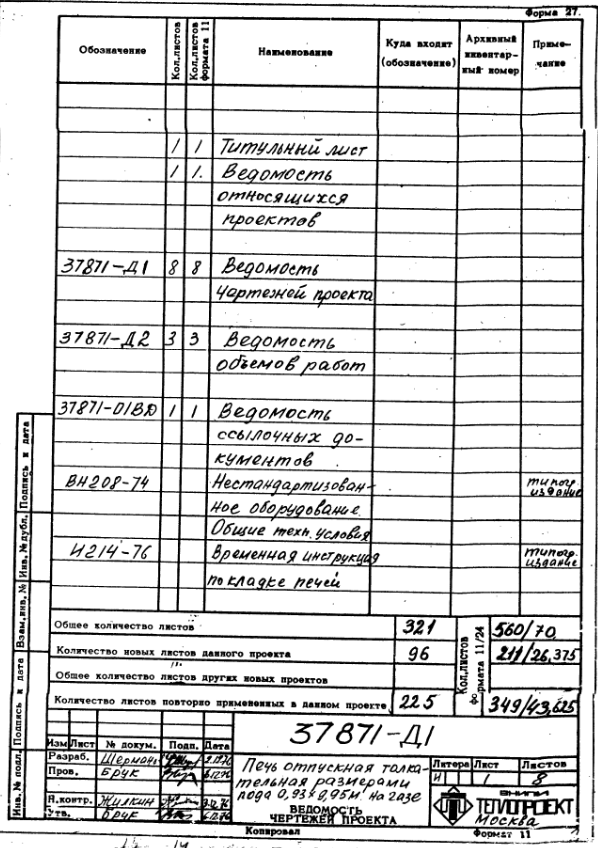 Форма 27.
Обозначение Кол.листов Кол.листов формата 11 Наименование Куда входит (обозначение) Архивный инвентарный номер Примечание
1 1 Титульный лист
1 1. Ведомость
относящихся
проектов
37871-Д1 8 8 Ведомость
чертежей проекта
37871-Д2 3 3 Ведомость
объемов работ
37871-01ВД 1 1 Ведомость
ссылочных до-
кументов
ВН208-74 Нестандартизован- типогр.
ное оборудование. издание
Общие техн. условия
И214-76 Временная инструкция типогр.
по кладке печей издание
Общее количество листов 321 Кол.листов формата 11/24 560/70
Количество новых листов данного проекта 96 211/26,375
Общее количество листов других новых проектов
Количество листов повторно примененных в данном проекте 225 349/43,625
37871-Д1
Изм Лист № докум. Подп. Дата
Разраб. Шерман
Пров. Брук
Н.контр. Жилкин
Утв. Брук
Печь отпускная толка-
тельная размерами
пода 0,93х0,95м. на газе
ВЕДОМОСТЬ
ЧЕРТЕЖЕЙ ПРОЕКТА
Литера Лист Листов
И 1 8
ВНИПИ
ТЕПЛОПРОЕКТ
Москва
Копировал Формат 11
Инв.№ подл. Подпись и дата Взам.инв.№ Инв.№ дубл. Подпись и дата